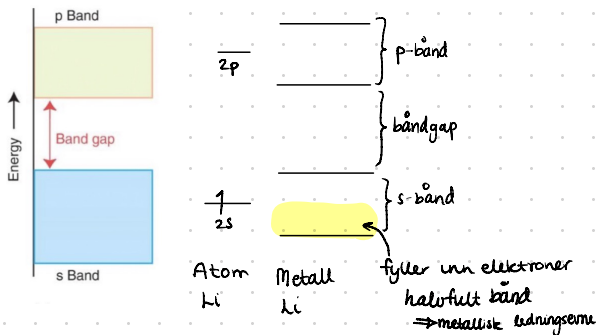 p Band
Band gap
Energy
s Band
2p
2s
p-bånd
båndgap
s-bånd
Atom
Li
Metall
Li
fyller inn elektroner
halvfult bånd
⇒ metallisk ledningsevne